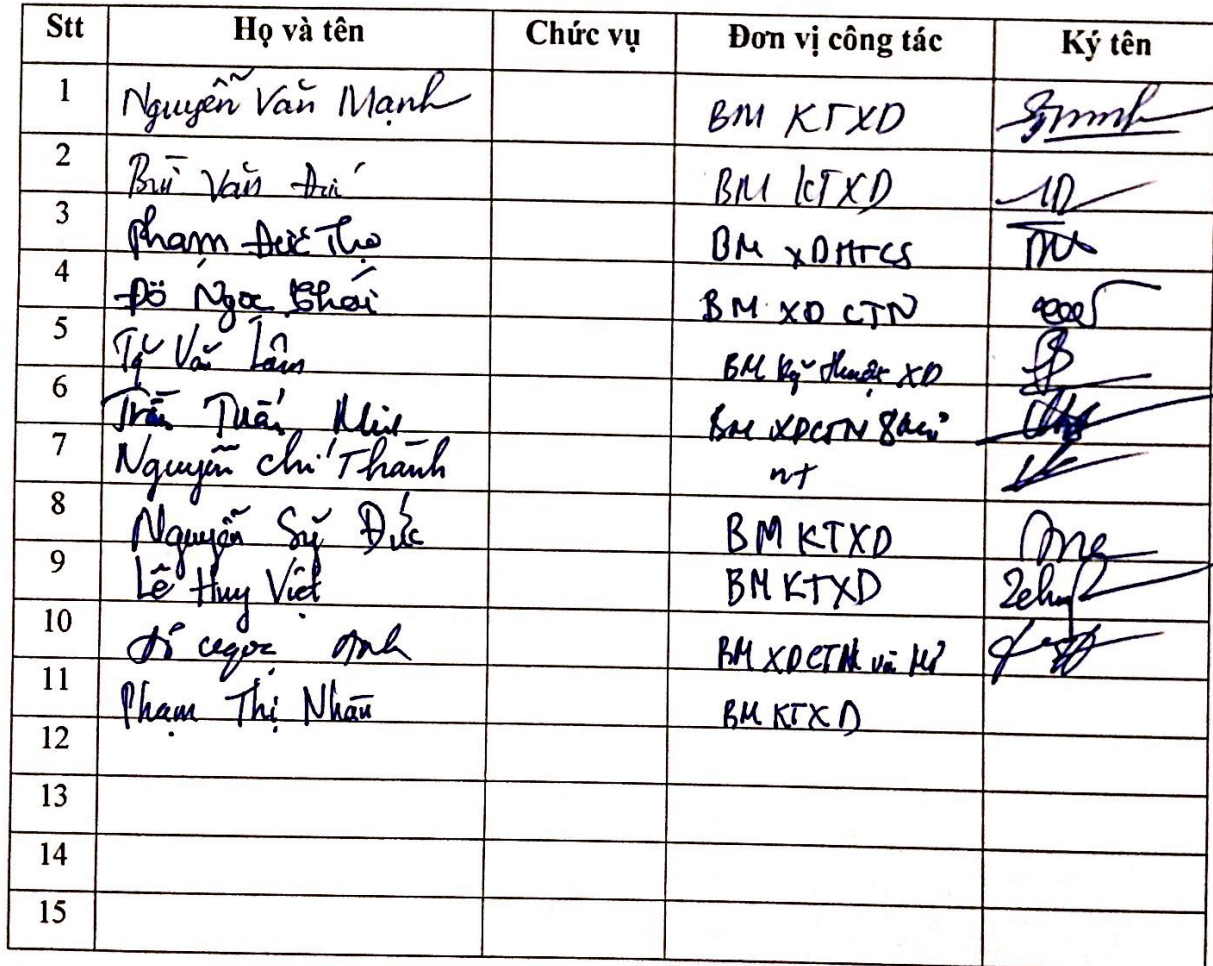 Stt Họ và tên Chức vụ Đơn vị công tác Ký tên
1 Nguyễn Văn Mạnh BM KTXD
2 Bùi Văn Đức BM KTXD
3 Phạm Đức Thọ BM XDHTCS
4 Đỗ Ngọc Thái BM XD CTN
5 Tạ Văn Lâm BM Kỹ thuật XD
6 Trần Tuấn Minh BM XDCTN &
7 Nguyễn Chí Thành nt
8 Nguyễn Sỹ Đức BM KTXD
9 Lê Huy Việt BM KTXD
10 Ngọc Anh BM XDCTN và Mỏ
11 Phạm Thị Nhàn BM KTXD
12
13
14
15